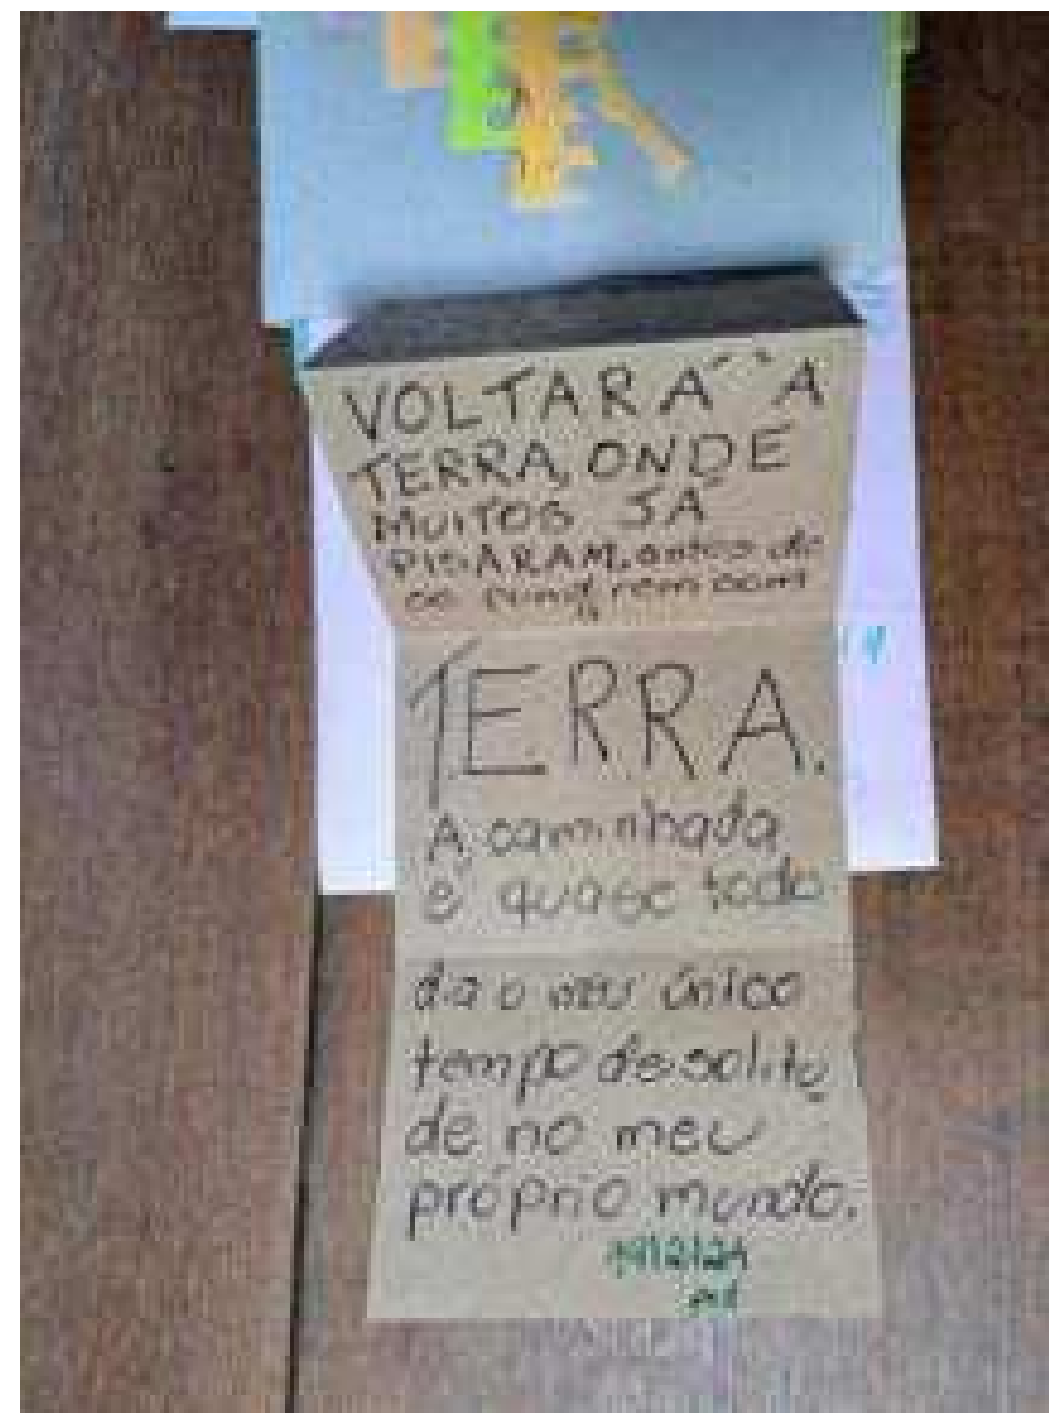 VOLTARÁ À
TERRA, ONDE
MUITOS JÁ
PISARAM, antes de
se fundirem com
TERRA.
A caminhada
é quase todo
dia o meu único
tempo de solitu
de no meu
próprio mundo.